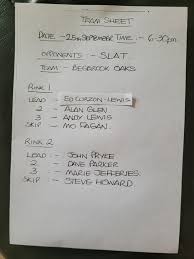 TEAM SHEET
DATE - 25th SEPTEMBER TIME :- 6-30pm
OPPONENTS :- SLAT
TEAM :- BEGBROOK OAKS
RINK 1
LEAD :- ED CURZON-LEWIS
2 - ALAN GLEN
3 - ANDY LEWIS
SKIP - MO FAGAN.
RINK 2
LEAD :- JOHN PRYKE
2 - DAVE PARKER
3 - MARIE JEFFERIES.
SKIP :- STEVE HOWARD.